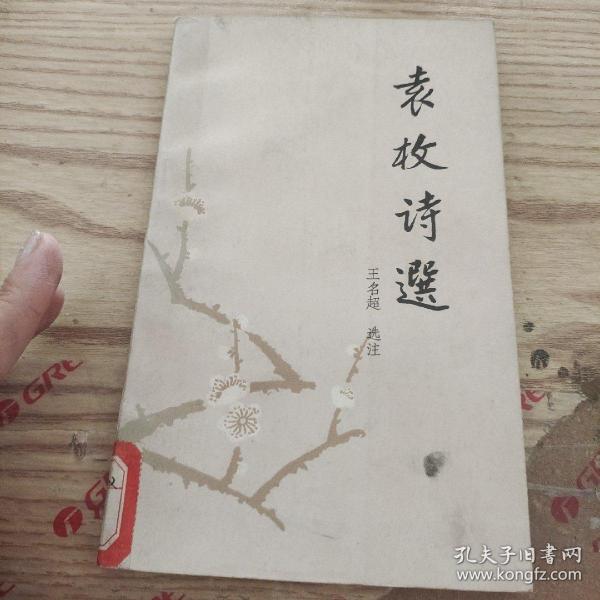 袁枚诗選
王名超 选注
GRE
孔夫子旧書网
www.kongfz.com